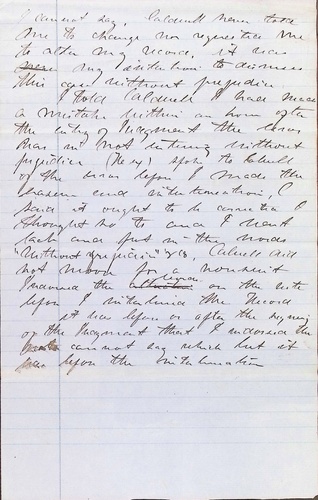 I cannot say, Caldwell never told
me to change nor requested me
to alter my record, it was
my intention to dismiss
this case without prejudice
I told Caldwell I had made
a mistake within an hour after
the entry of Judgment the
was not without
prejudice I spoke to Caldwell
of the before I made the
and interlineation, I
said it ought to be corrected I
thought so too and I went
back and put in the words
"Without prejudice" &c, Caldwell did
not move for a nonsuit
I endorsed the on the
before I interlined the Record
it was before or after the signing
of the Judgment that I endorsed the
cannot say which but it
was before the interlineation